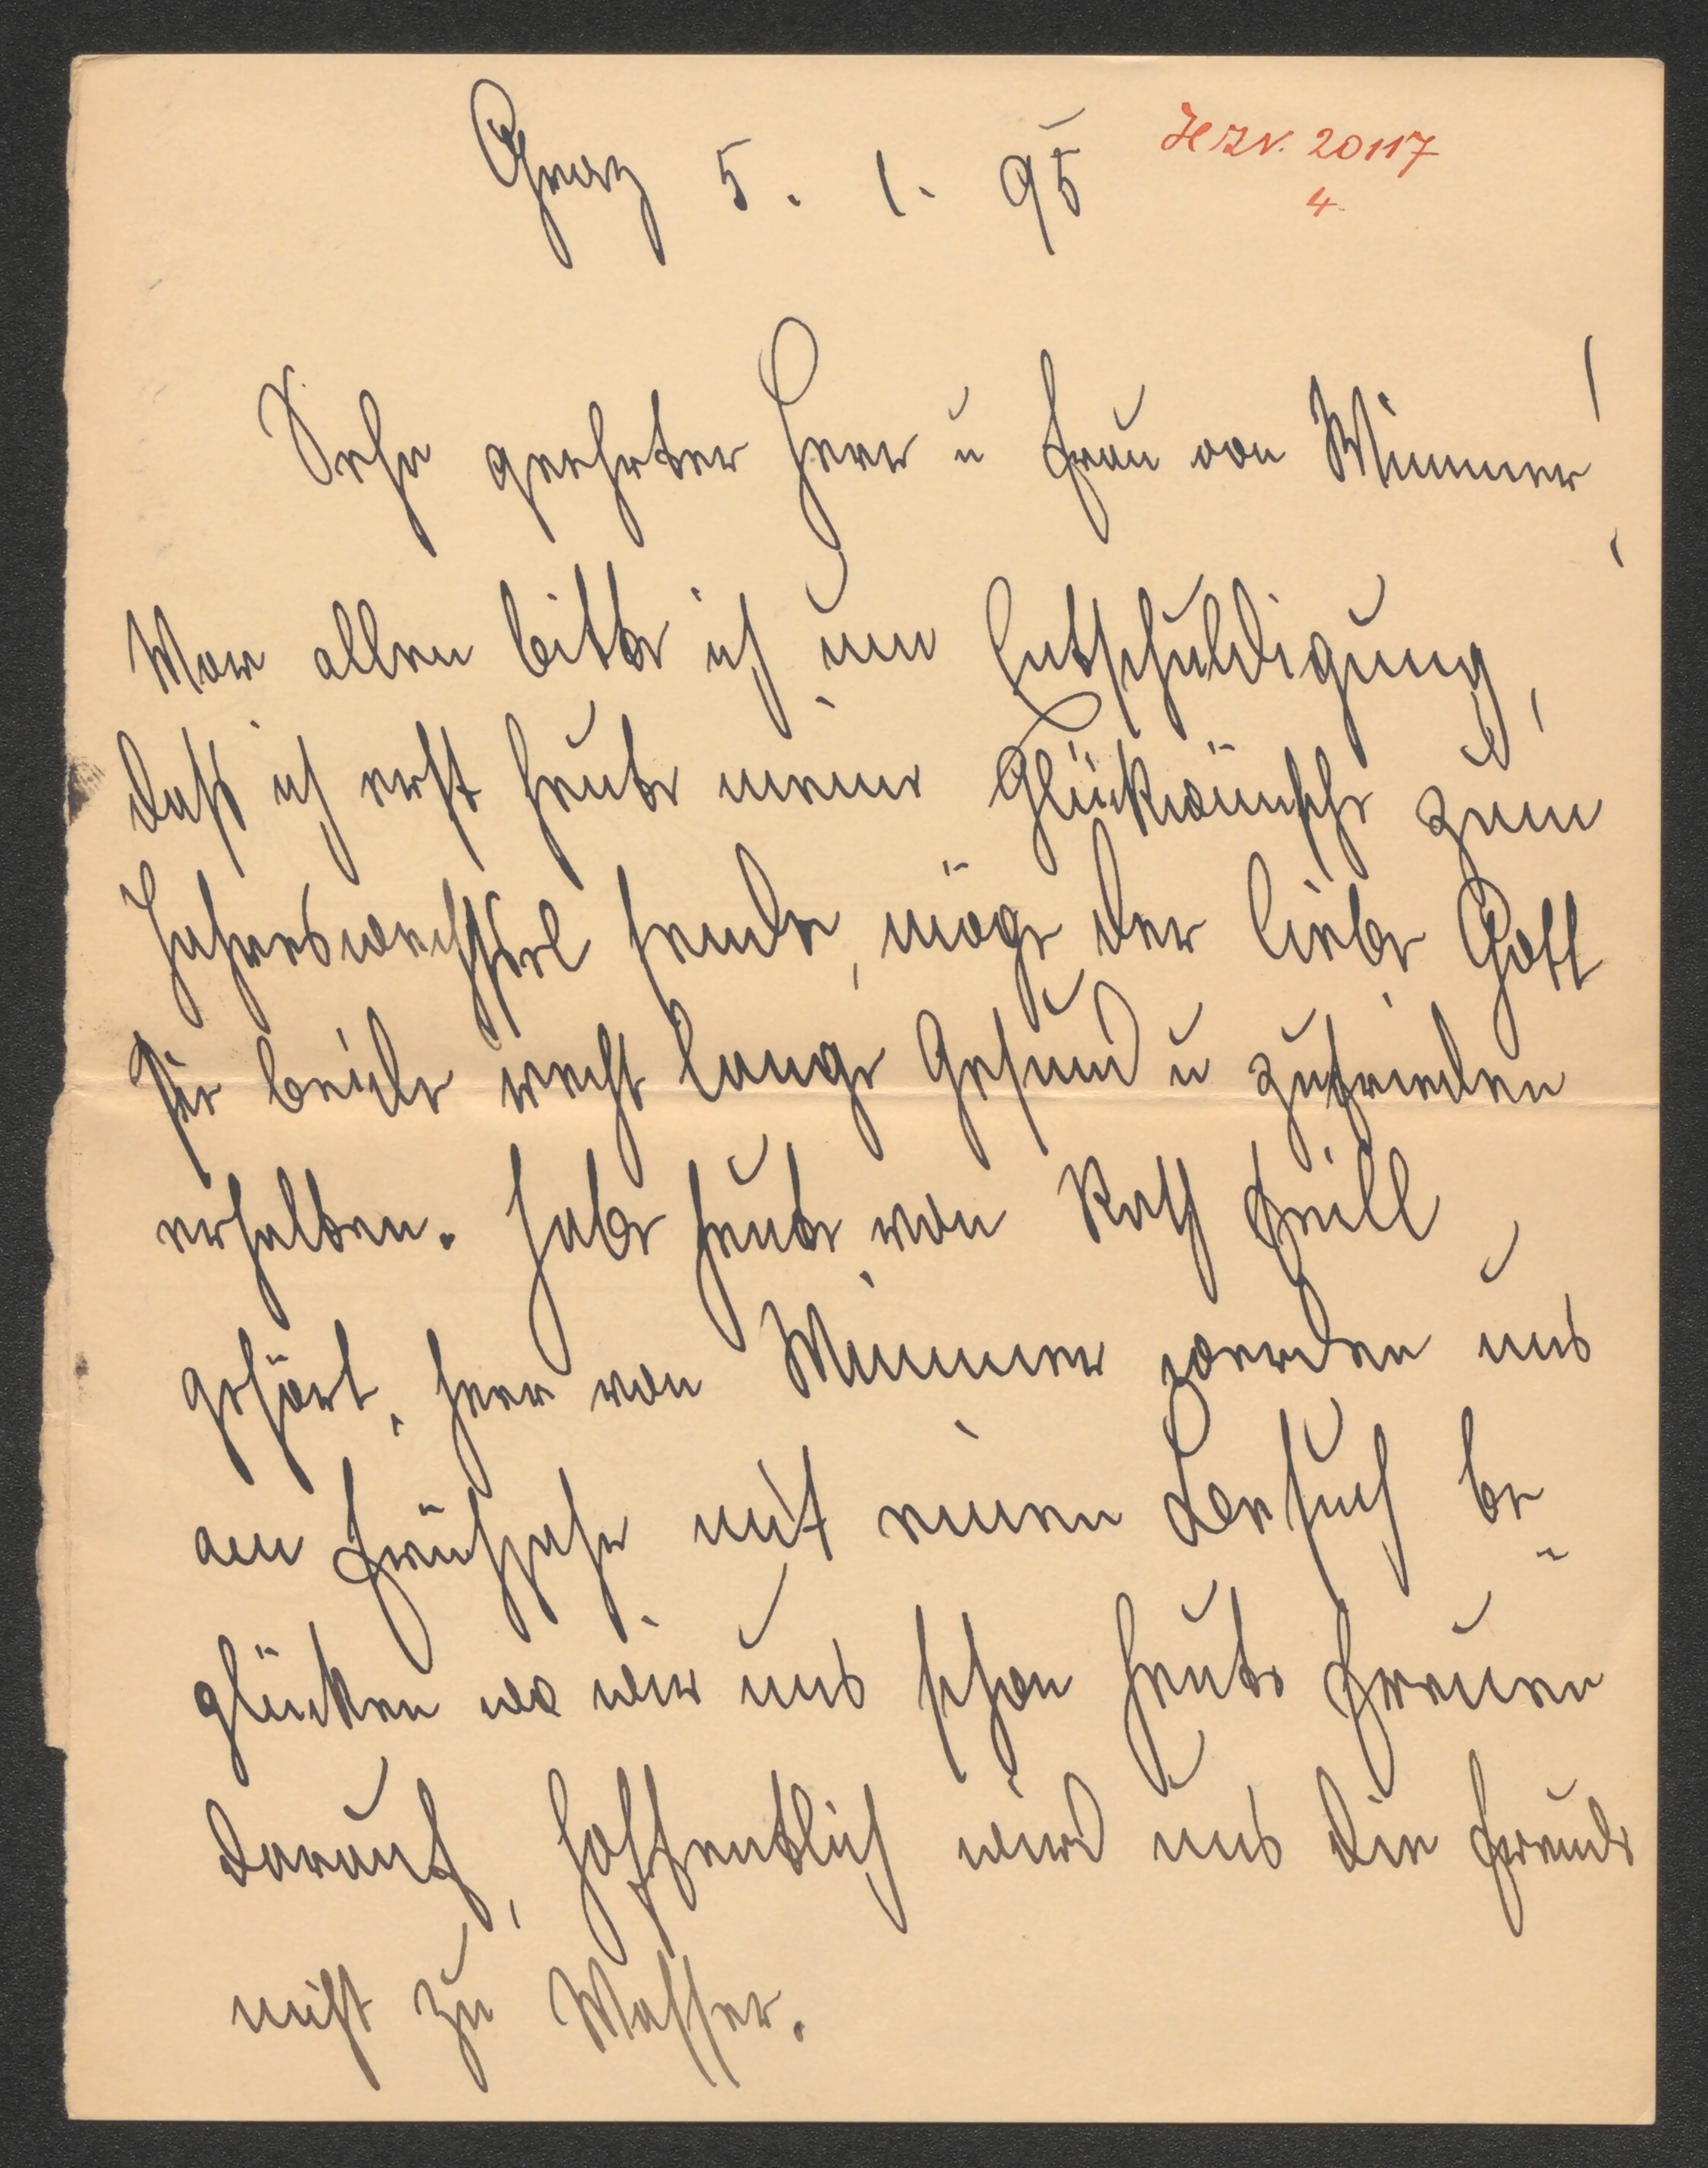 Graz 5. 1. 95
HZN. 20117
4
Sehr geehrter Herr u Frau von Wimmer!
Vor allen bitte ich um Entschuldigung,
daß ich erst heute meine Glückwünsche zum
Jahreswechsel sende, möge der liebe Gott
Sie beide recht lange Gesund u zufrieden
erhalten. Habe heute von Rath
gehört, Herr von Wimmer werden uns
am Frühjahr mit einen Besuch be-
glücken wo wir uns schon heute freuen
darauf, hoffentlich wird uns die Freude
nicht zu Wasser.